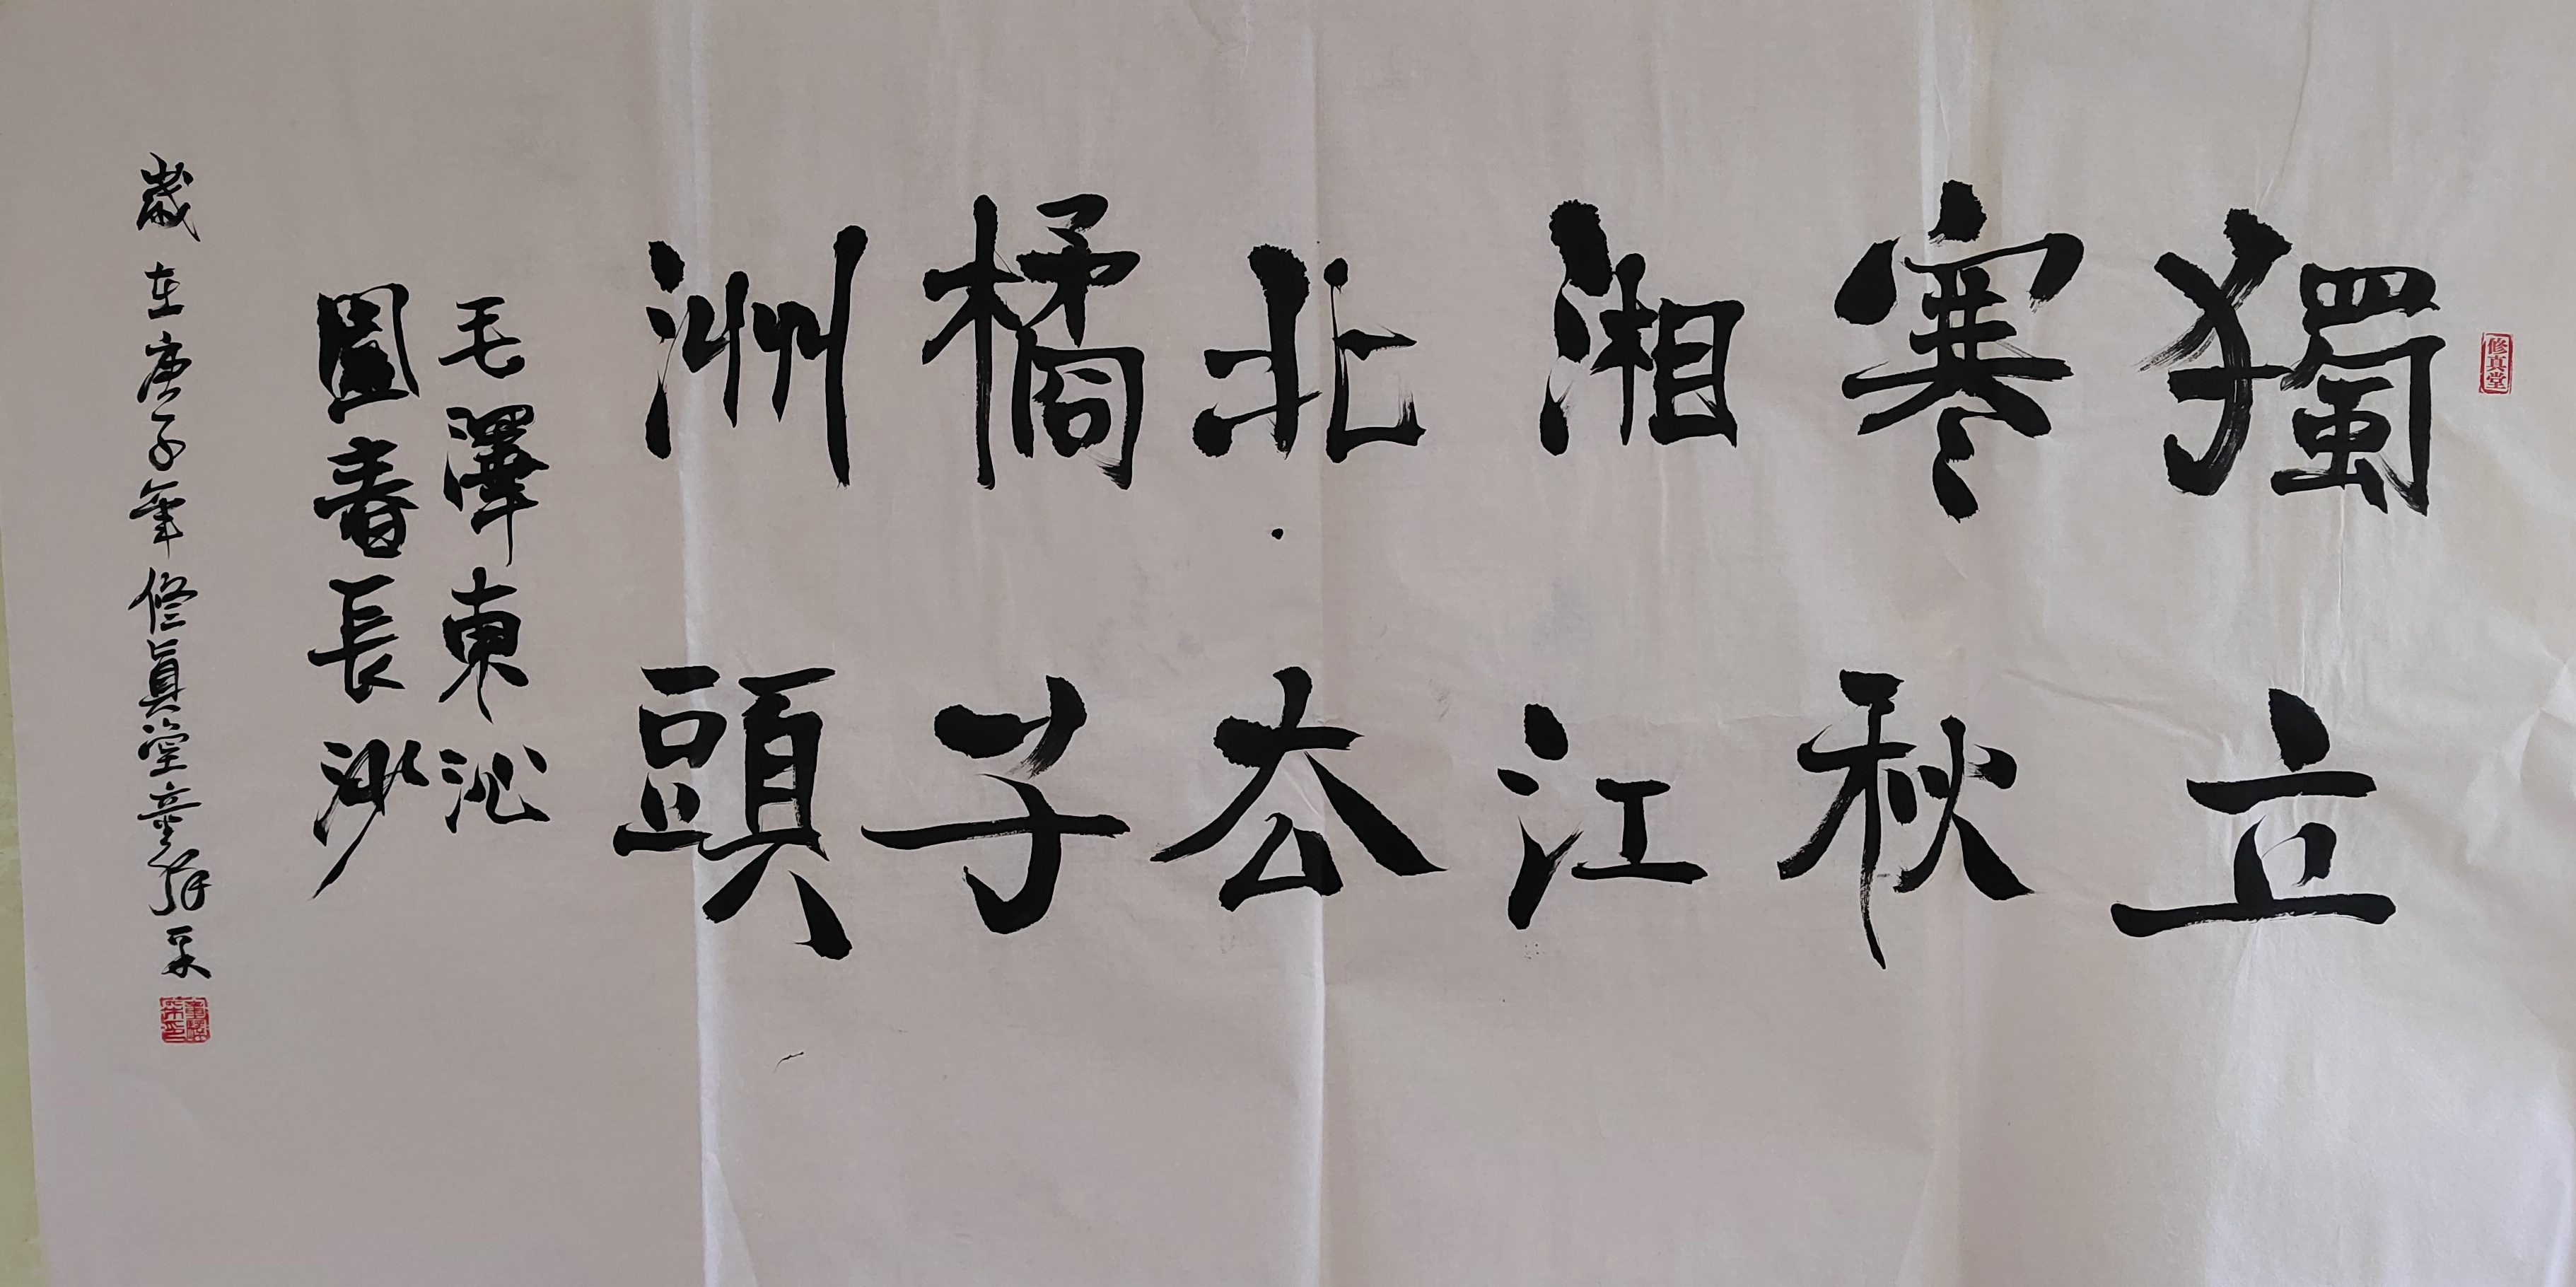 修真堂
獨立
寒秋
湘江
北去
橘子
洲頭
毛澤東沁
園春長沙
歲在庚子年修真堂童祥采